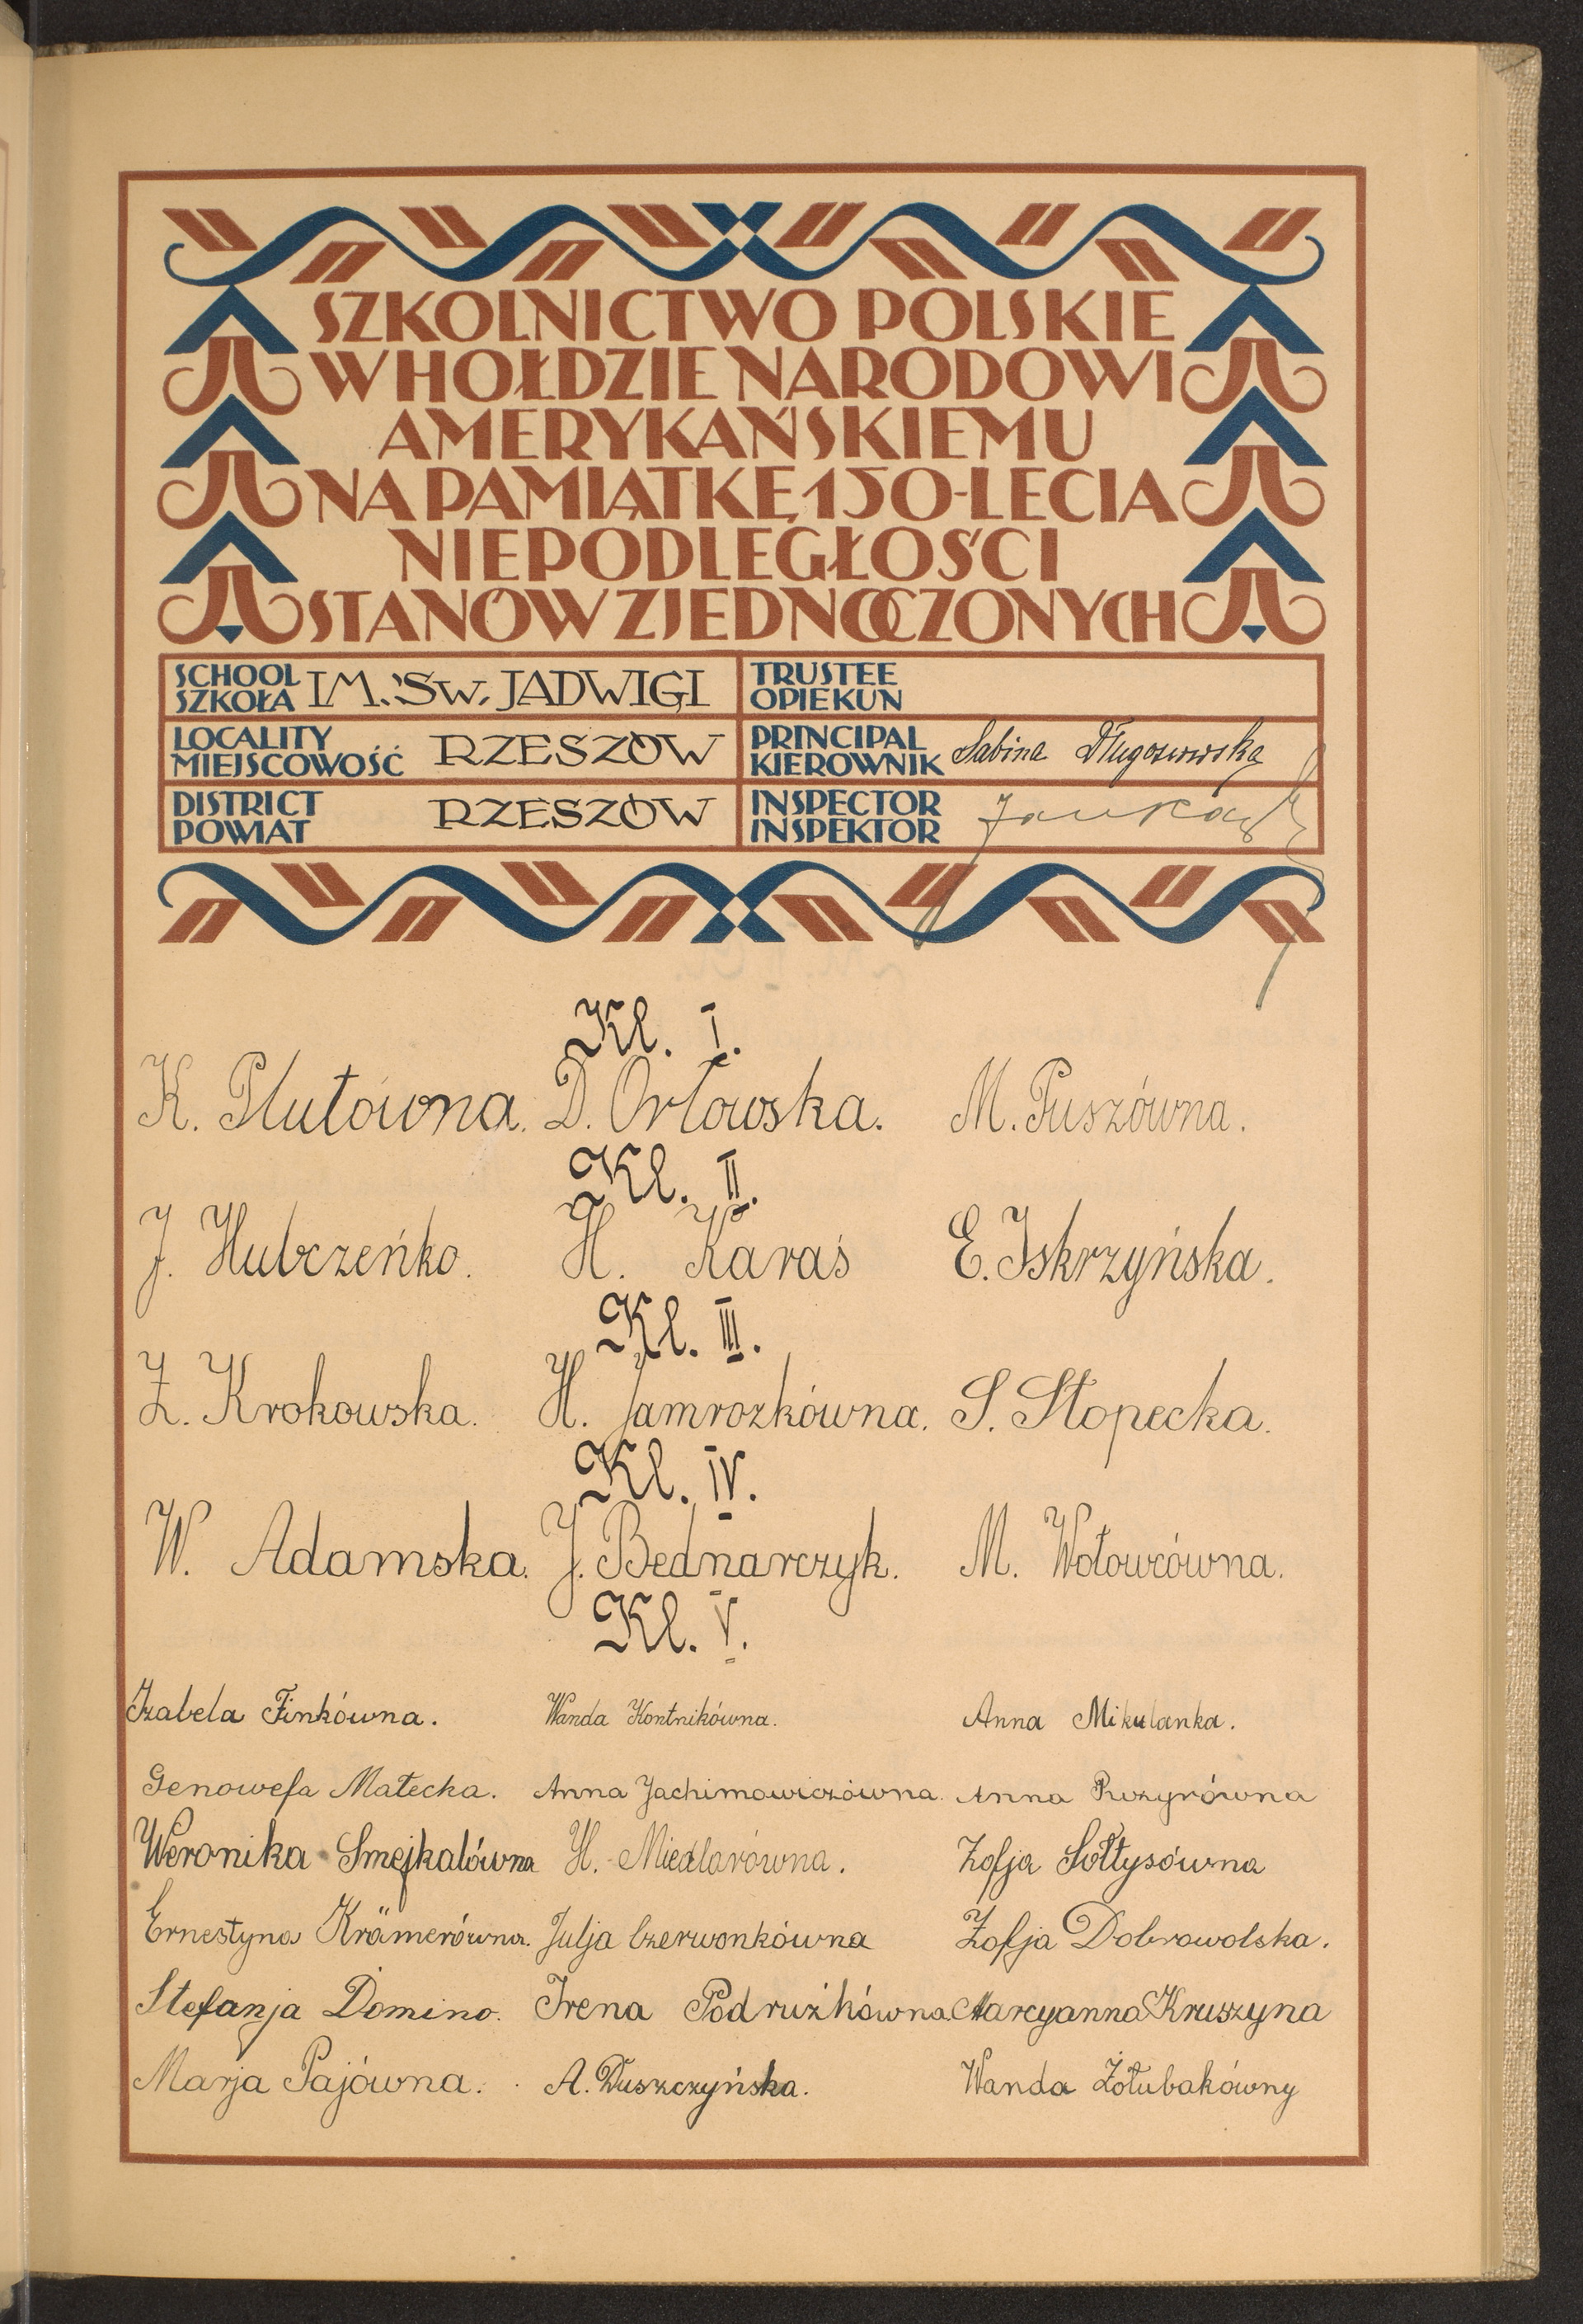 SZKOLNICTWO POLSKIE
W HOŁDZIE NARODOWI
AMERYKAŃSKIEMU
NA PAMIĄTKĘ 150-LECIA
NIEPODLEGŁOŚCI
STANÓW ZJEDNOCZONYCH
SCHOOL SZKOŁA IM. ŚW. JADWIGI
TRUSTEE OPIEKUN
LOCALITY MIEJSCOWOŚĆ RZESZÓW
PRINCIPAL KIEROWNIK Sabina Długoszowska
DISTRICT POWIAT RZESZÓW
INSPECTOR INSPEKTOR
Kl. I.
K. Plutówna. D. Orłowska. M. Puszówna.
Kl. II.
J. Hubczeńko. H. Karaś E. Iskrzyńska.
Kl. III.
Z. Krokowska. H. Jamrozkówna. S. Stopecka.
Kl. IV.
W. Adamska. J. Bednarczyk. M. Wołowcówna.
Kl. V.
Izabela Finkówna. Wanda Kontnikówna. Anna Mikulanka.
Genowefa Małecka. Anna Jachimowiczówna. Anna
Weronika Smejkalówna H. Miedlarówna. Zofja Sołtysówna
Ernestyna Krämerówna. Julja Czerwonkówna Zofja Dobrowolska.
Stefanja Domino. Irena Podrużkówna. Marcyanna Kruszyna
Marja Pajówna. A. Duszczyńska. Wanda Żołubakówny